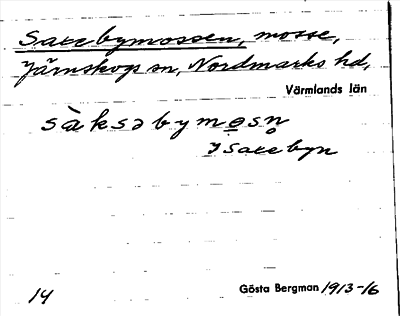 Saxebymossen, mosse,
Järnskogs sn, Nordmarks hd,
Värmlands län
sàksəbymo̲sn̥
I Saxebyn
14 Gösta Bergman 1913-16